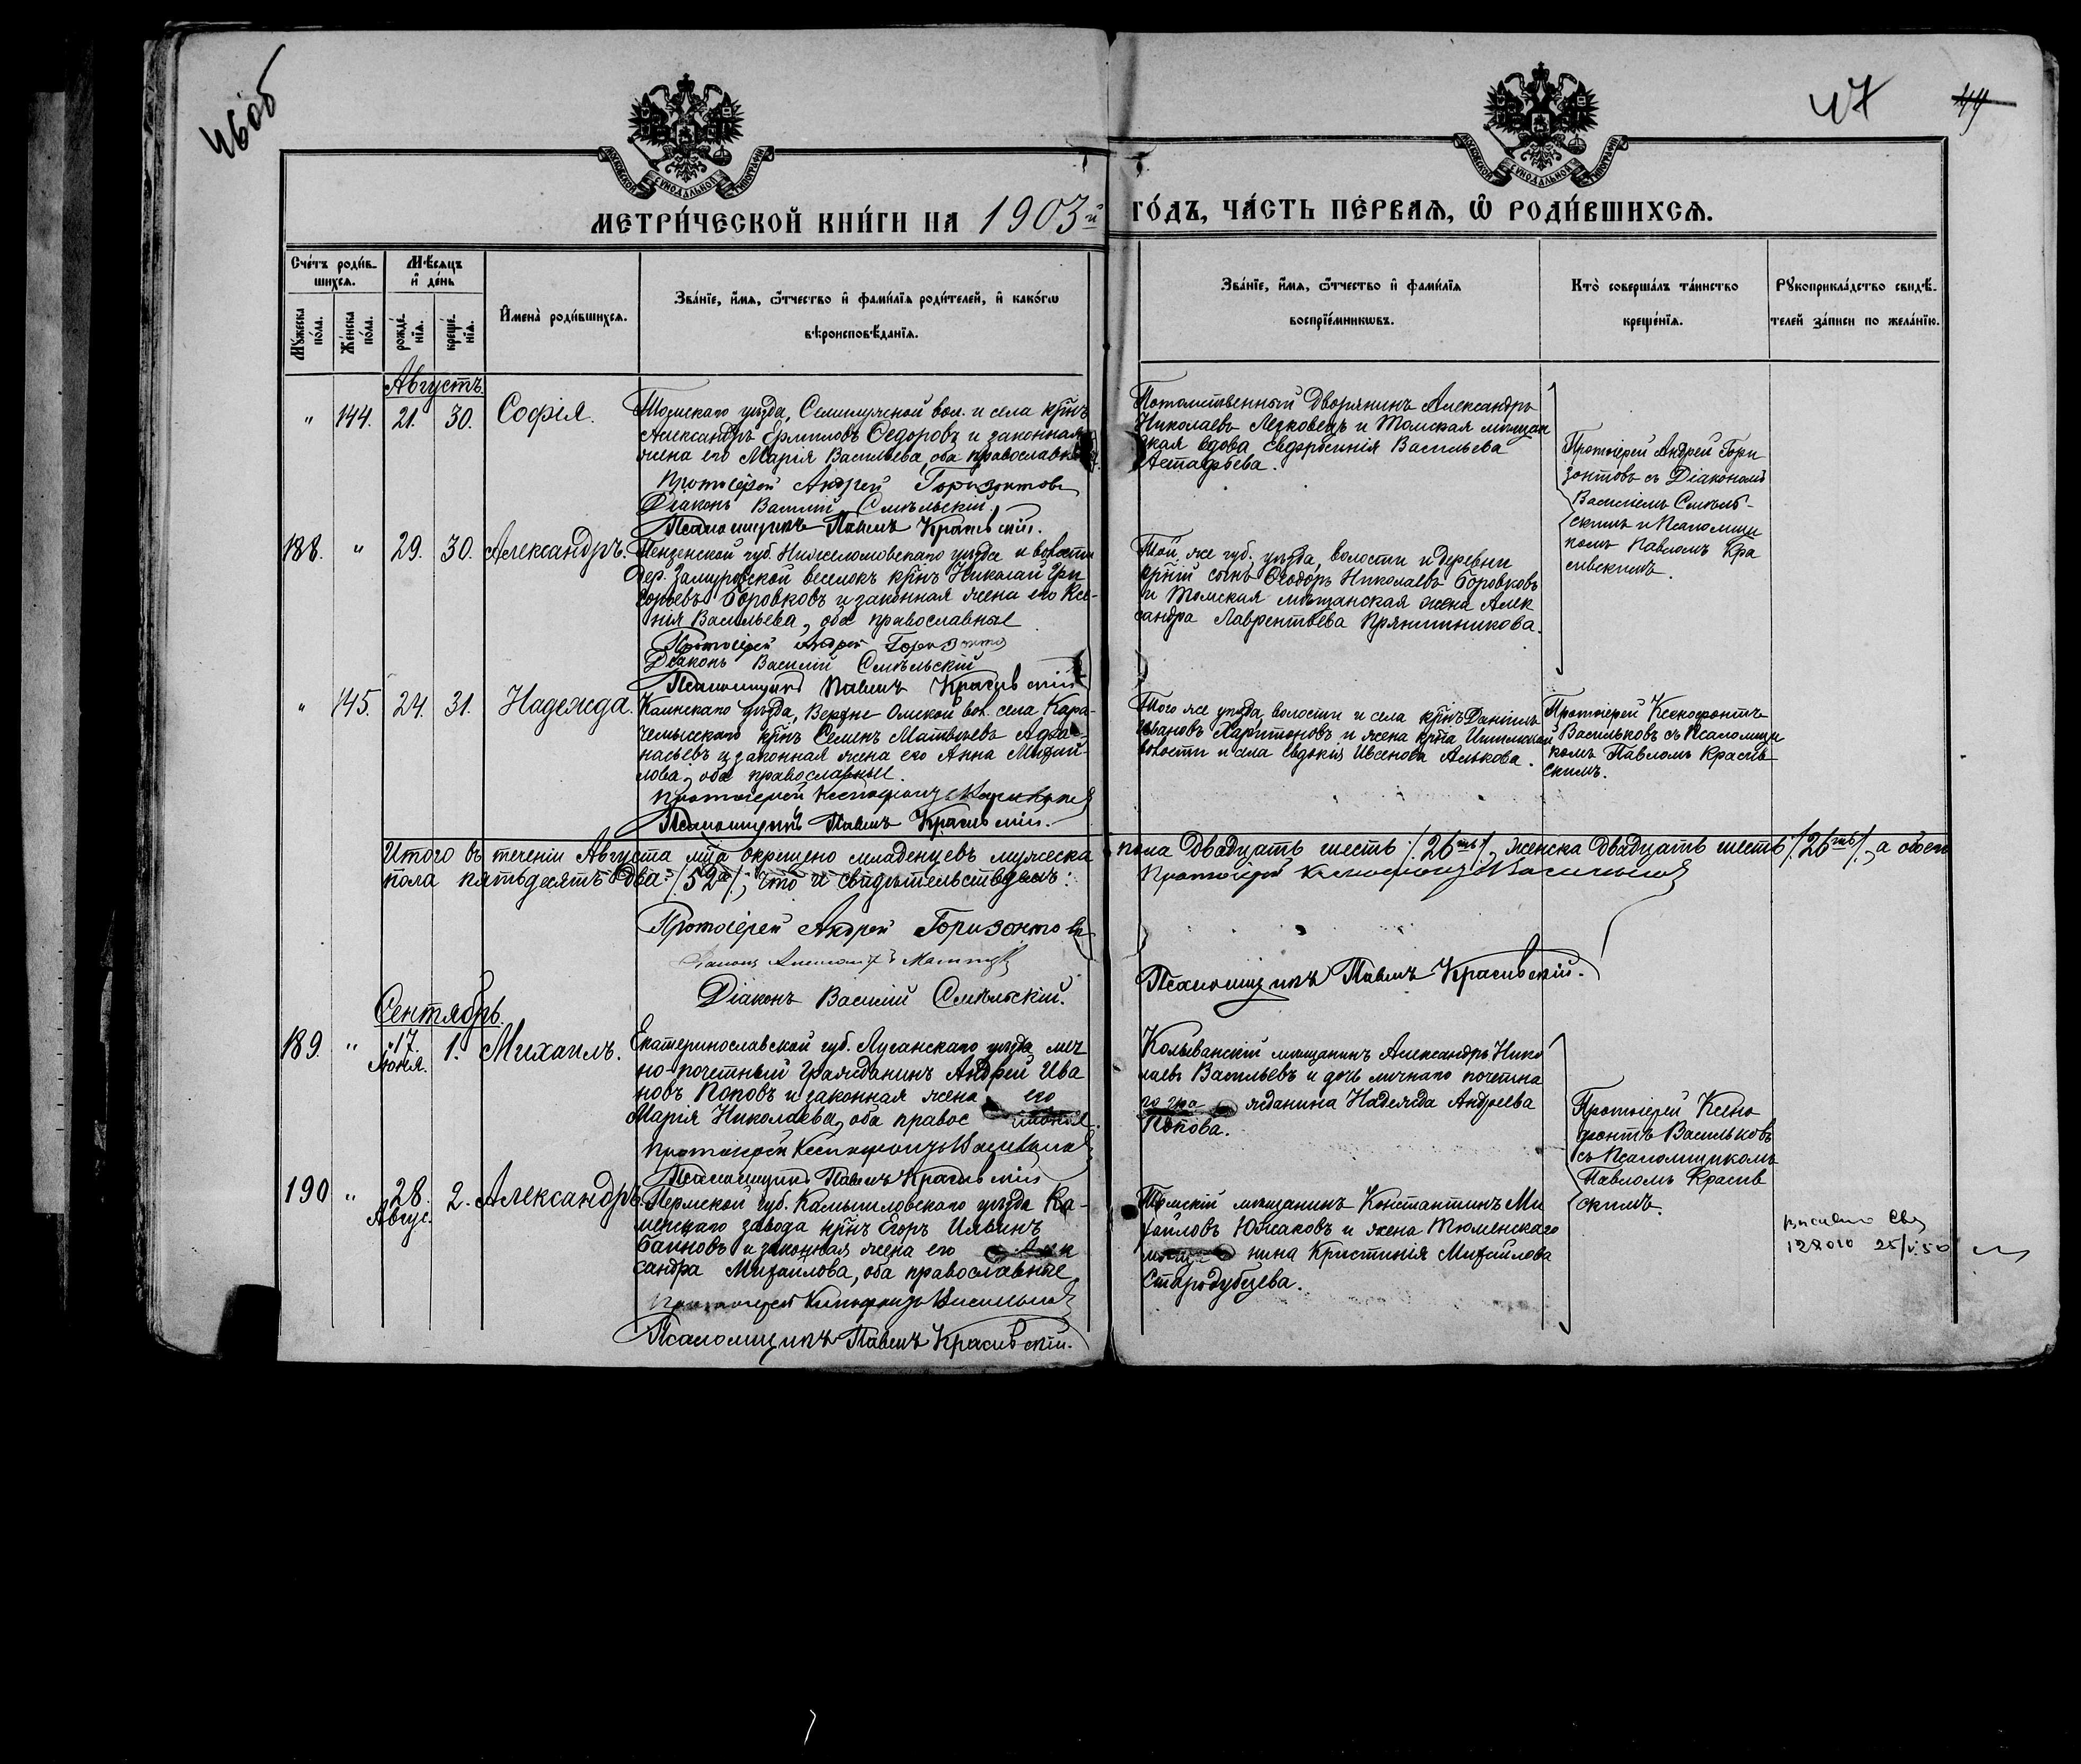 46 об
47
44
МОСКОВСКОЙ СѴНОДАЛЬНОЙ ТИПОГРАФІИ
МОСКОВСКОЙ СѴНОДАЛЬНОЙ ТИПОГРАФІИ
МЕТРИ́ЧЕСКОЙ КНИ́ГИ НА 1903й ГО́ДЪ, ЧА́СТЬ ПЕ́РВАѦ, Ѽ РОДИ́ВШИХСѦ.
Сче́тъ роди́в-
шихсѧ.
Мѣ́сѧцъ
и҆ де́нь
Мꙋ́жеска
по́ла.
Же́нска
по́ла.
рожде́-
нїѧ.
креще́-
нїѧ.
И҆мена̀ роди́вшихсѧ.
Зва́нїе, и҆́мѧ, ѻ҆́тчество и҆ фами́лїѧ роди́телей, и҆ како́гѡ
вѣроисповѣ́данїѧ.
Зва́нїе, и҆́мѧ, ѻ҆́тчество и҆ фами́лїѧ
воспрїе́мникѡвъ.
Кто̀ соверша́лъ та́инство
креще́нїѧ.
Рꙋкоприкла́дство свидѣ́-
телей за́писи по жела́нїю.
Августъ.
" 144. 21. 30. Софія.
Томскаго уѣзда, Семилужной вол. и села крнъ
Александръ Ермиловъ Ѳедоровъ и законная
жена его Марія Васильева, оба православные.
Протоіерей Андрей Горизонтовъ
Діаконъ Василій Смѣльскій.
Псаломщикъ Павелъ Красивскій.
Потомственный Дворянинъ Александръ
Николаевъ Легковецъ и Томская мѣщан
ская вдова Евфросинія Васильева
Астафьева.
Протоіерей Андрей Гори
зонтовъ съ Діакономъ
Василіемъ Смѣль-
скимъ и Псаломщи
комъ Павломъ Кра
сивскимъ.
188. " 29. 30. Александръ.
Пензенской губ. Нижеломовскаго уѣзда и волости
дер. крнъ Николай Гри
горьевъ Боровковъ и законная жена его Ксе-
нія Васильева, оба православные
Протоіерей Андрей Горизонтов
Діаконъ Василій Смѣльскій
Псаломщикъ Павелъ Красивскій
Той же губ., уѣзда, волости и деревни
крній сынъ Ѳеодоръ Николаевъ Боровковъ
и Томская мѣщанская жена Алек
сандра Лаврентьева Прянишникова.
" 145. 24. 31. Надежда.
Каинскаго уѣзда, Верхне-Омской вол. села Кара-
чемышскаго крнъ Семенъ Матвѣевъ Афа-
насьевъ и законная жена его Анна Михай-
лова, оба православные.
Протоіерей Ксенофонтъ Васильковъ
Псаломщикъ Павелъ Красивскій.
Того же уѣзда, волости и села крнъ Даніилъ
Ивановъ Харитоновъ и жена крна
волости и села Евдокія
Протоіерей Ксенофонтъ
Васильковъ съ Псаломщи
комъ Павломъ Красив
скимъ.
Итого въ теченіи Августа мца окрещено младенцевъ мужеска пола двадцать шесть /26ть/, женска двадцать шесть /26ть/, а обоего
пола пятьдесятъ два /52а/, что и свидѣтельствуемъ:
Протоіерей Ксенофонтъ Васильковъ
Протоіерей Андрей Горизонтовъ
Діаконъ Василій Смѣльскій.
Псаломщикъ Павелъ Красивскій.
Сентябрь.
189. " 17. Іюня. 1. Михаилъ.
Екатеринославской губ. Луганскаго уѣзда лич
но-почетный Гражданинъ Андрей Ива
новъ Поповъ и законная жена его
Марія Николаева, оба православные.
Протоіерей Ксенофонтъ Васильковъ
Псаломщикъ Павелъ Красивскій
Колыванскій мѣщанинъ Александръ Нико
лаевъ Васильевъ и дочь личнаго почетна
го гражданина Надежда Андреева
Попова.
Протоіерей Ксено
фонтъ Васильковъ
съ Псаломщикомъ
Павломъ Красив
скимъ.
190 " 28. Авгус. 2. Александръ.
Пермской губ. Камышловскаго уѣзда Ка-
менскаго завода крнъ Егоръ Ильинъ
Баиновъ и законная жена его Алек
сандра Михайлова, оба православные
Протоіерей Ксенофонтъ Васильковъ
Псаломщикъ Павелъ Красивскій.
Томскій мѣщанинъ Константинъ Ми
хайловъ Южаковъ и жена Тюменскаго
мѣщанина Кристинія Михайлова
Стародубцева.
128010 25/V.50